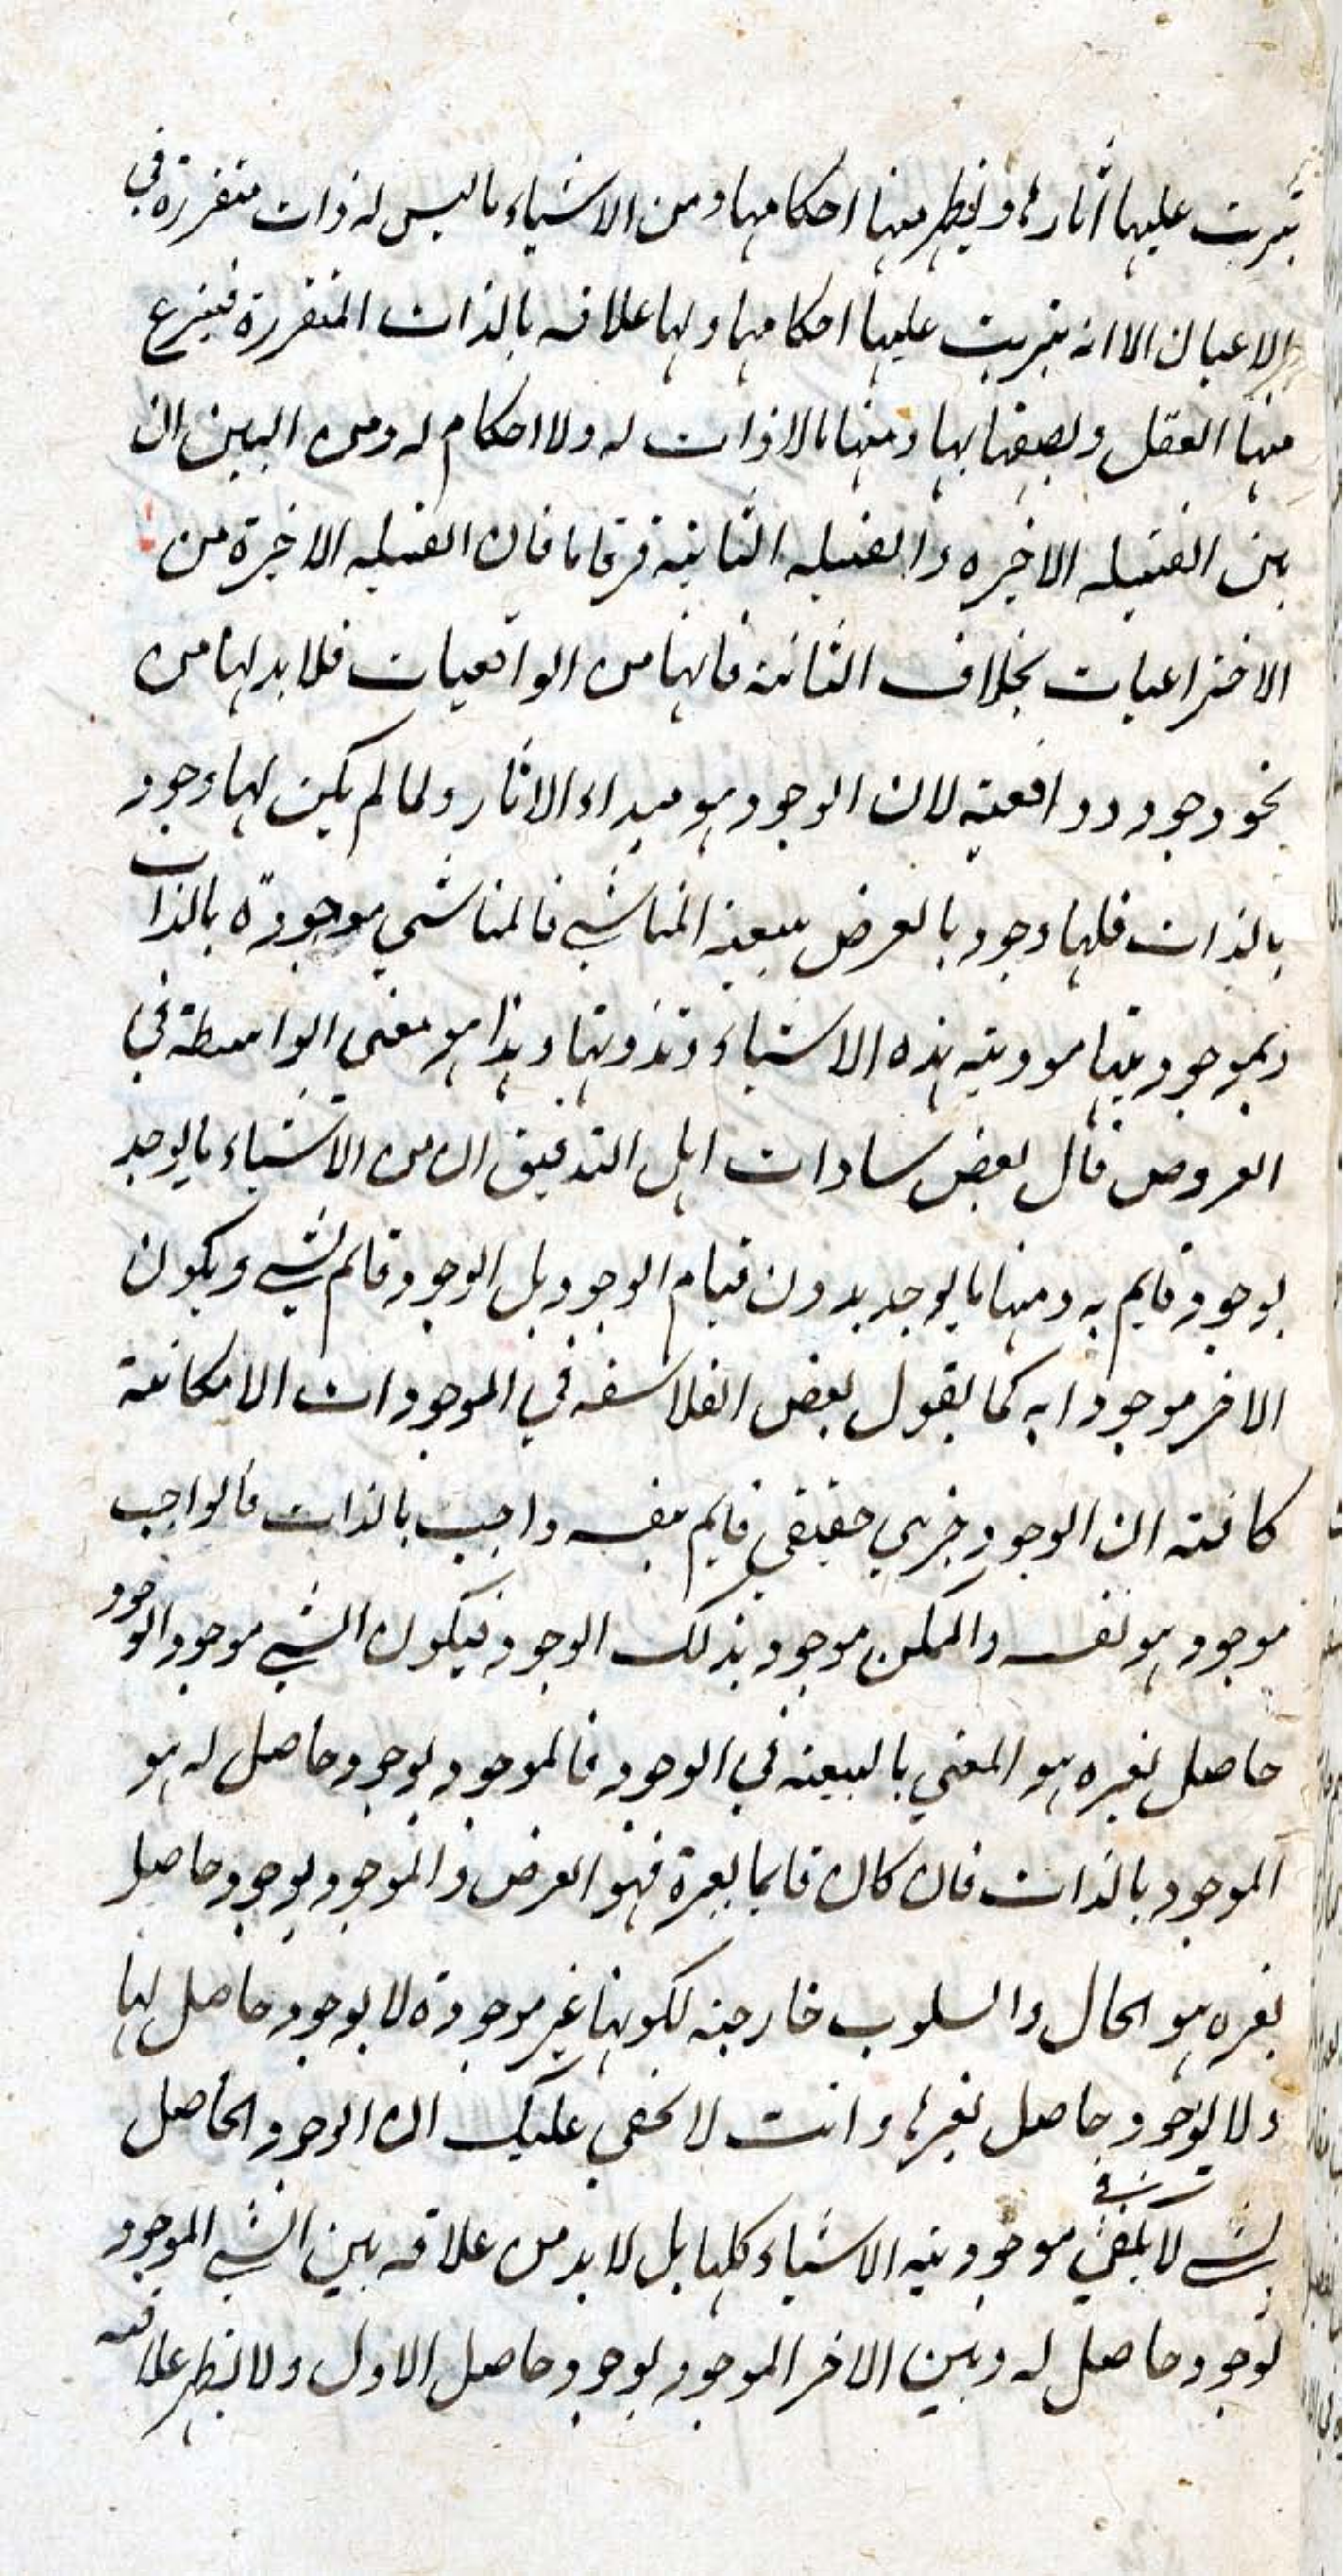 يترتب عليها آثارها ويظهر منها احكامها ومن الاشياء ما ليس له ذات متقررة في
الاعيان الا انه يترتب عليها احكامها ولها علاقه بالذات المتقررة فينتزع
منها العقل ويصفها بها ومنها ما لا ذات له ولا احكام له ومن البين ان
بين القبيله الاخيره والقبيله الثانيه فرقا ما فان القبيله الاخيرة من
الاختراعيات بخلاف الثانية فانها من الواقعيات فلا بد لها من
نحو وجود وواقعية لان الوجود هو مبداء الاثار ولما لم يكن لها وجود
بالذات فلها وجود بالعرض بتبعية المناشي فالمناشي موجودة بالذات
وبموجوديتها موديته هذه الاشياء وتذوتها وهذا هو معنى الواسطة في
العروض قال بعض سادات اهل التدقيق ان من الاشياء ما يوجد
بوجود قايم به ومنها ما يوجد بدون قيام الوجود بل الوجود قايم بشيء ويكون
الاخر موجودا به كما يقول بعض الفلاسفه في الموجودات الامكانية
كافته ان الوجود جزيي حقيقي قايم بنفسه واجب بالذات فالواجب
موجود هو نفسه والممكن موجود بذلك الوجود فيكون الشي موجودا لوجود
حاصل لغيره هو المعني بالتبعية في الوجود فالموجود بوجود حاصل له هو
الموجود بالذات فان كان قايما بغيرة فهو العرض والموجود بوجود حاصل
بغيره هو الحال والسلوب خارجية لكونها غير موجودة لا بوجود حاصل لها
ولا بوجود حاصل لغيرها وانت لا يخفى عليك ان الوجود الحاصل
لشي لا يكفي في موجودية الاشياء كلها بل لا بد من علاقه بين الشي الموجود
لوجود حاصل له وبين الاخر الموجود بوجود حاصل الاول ولا يظهر علاقه